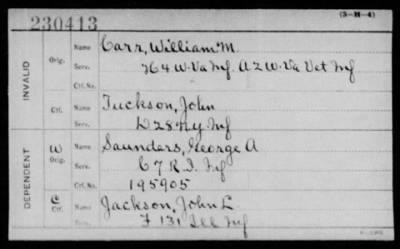 (3-H-4)
230413
INVALID
Orig.
Name Carr, William M.
Serv. H 4 W. Va Inf. A 2 W. Va Vet Inf
Ctf. No.
Ctf.
Name Tuckson, John
Serv. D 28 Ky Inf
DEPENDENT
W
Orig.
Name Saunders, George A
Serv. C 7 R. I. Inf
Ctf. No. 195905
C
Ctf.
Name Jackson, John L
F 131 Ill Inf